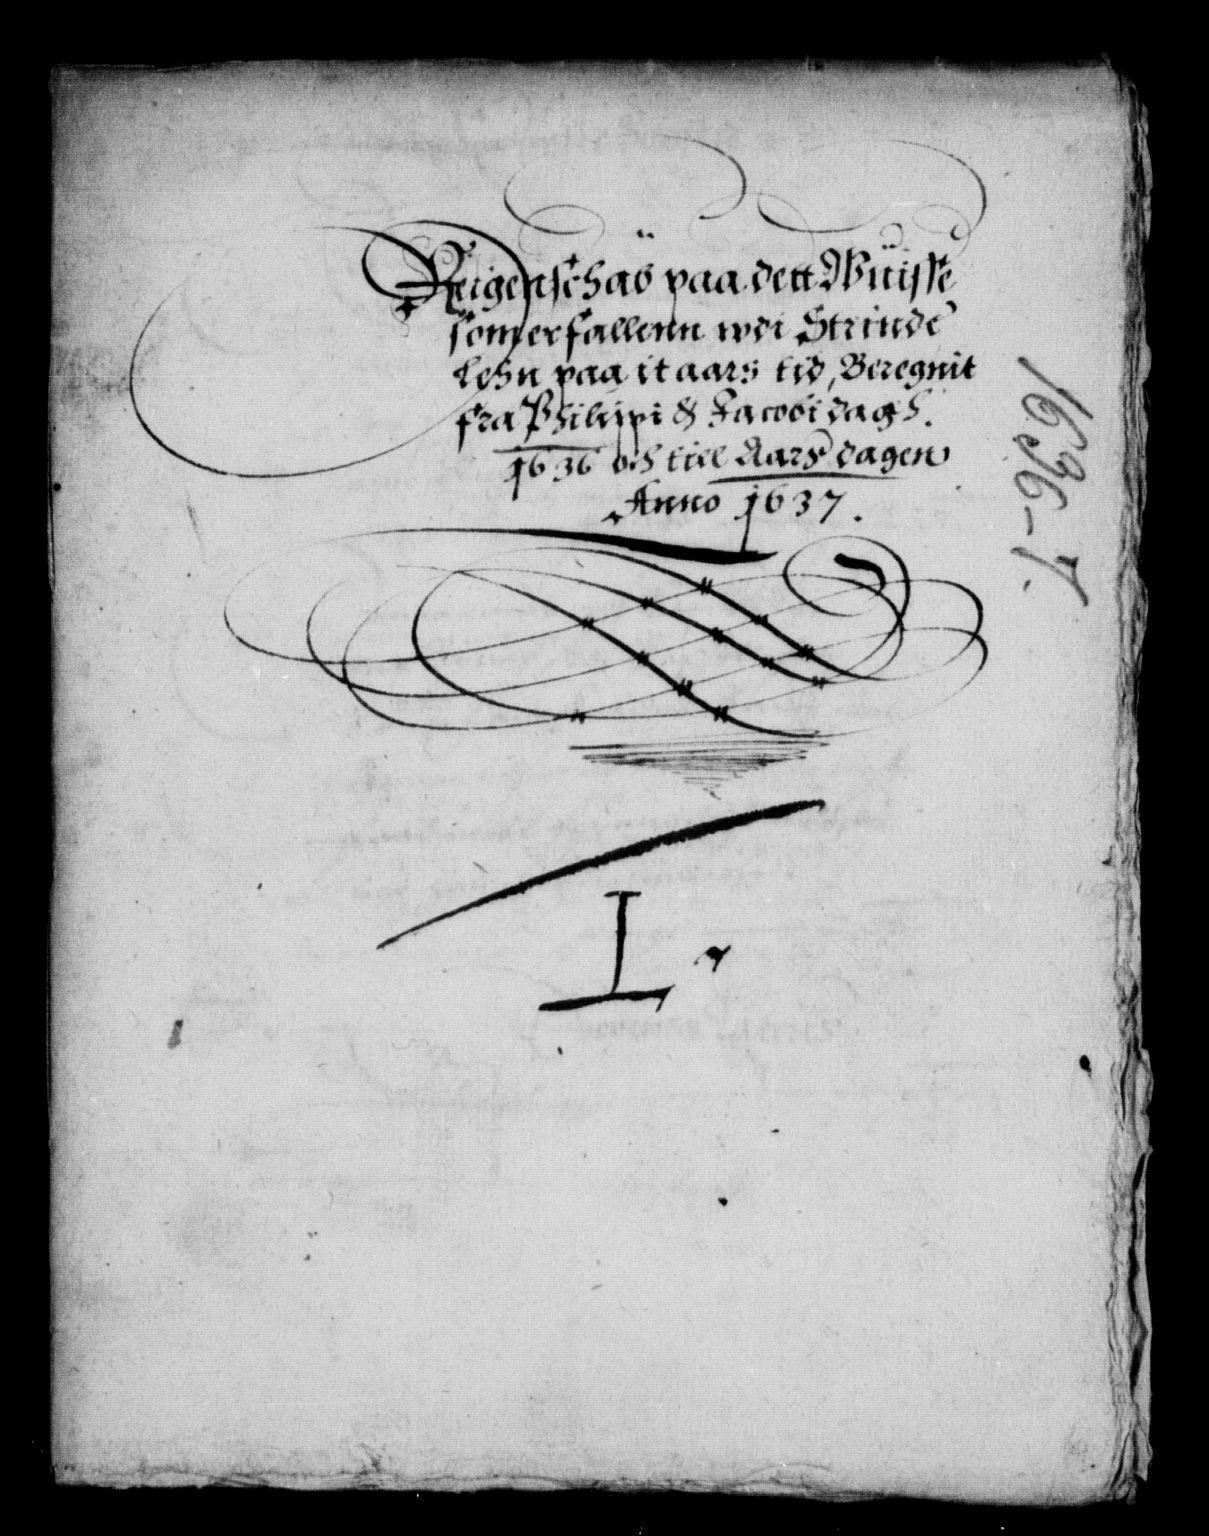 Reigenschab paa dett Wüisse
som er fallenn wdi Strinde
Lehn paa it aars tid, Beregnit
fra Philippi & Jacobi dagh.
1636 och till Aars dagen
Anno 1637.
I.
1636-7.